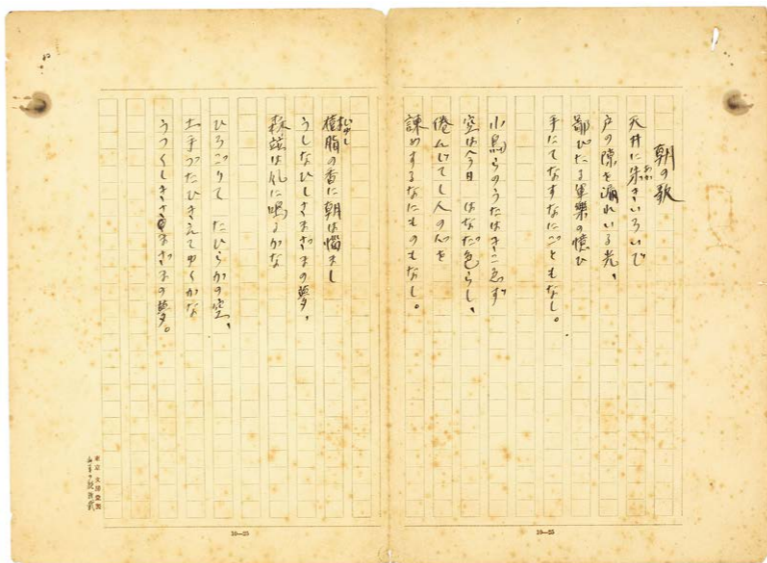 朝の歌
天井に朱きいろいで
戸の隙を洩れいる光、
鄙びたる軍樂の憶ひ
手にてなすなにごともなし。
小鳥らのうたはきこえず
空は今日 はなだ色らし、
倦んじてし人の心を
諫めするなにものもなし。
樹脂の香に朝は悩まし
うしなひしさまざまの夢、
森竝は風に鳴るかな
ひろごりて たひらかの空、
土手づたひきえてゆくかな
うつくしきさまざまの夢。
10—25
10—25